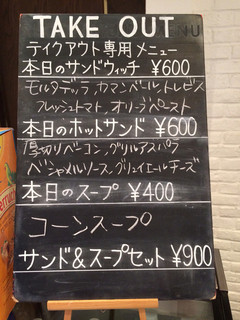 TAKE OUT
テイクアウト専用メニュー
本日のサンドウィッチ ¥600
モルタデッラ、カマンベール、トレビス
フレッシュトマト、オリーブペースト
本日のホットサンド ¥600
厚切りベーコン、グリルアスパラ
ベシャメルソース、グリュイエールチーズ
本日のスープ ¥400
コーンスープ
サンド&スープセット ¥900